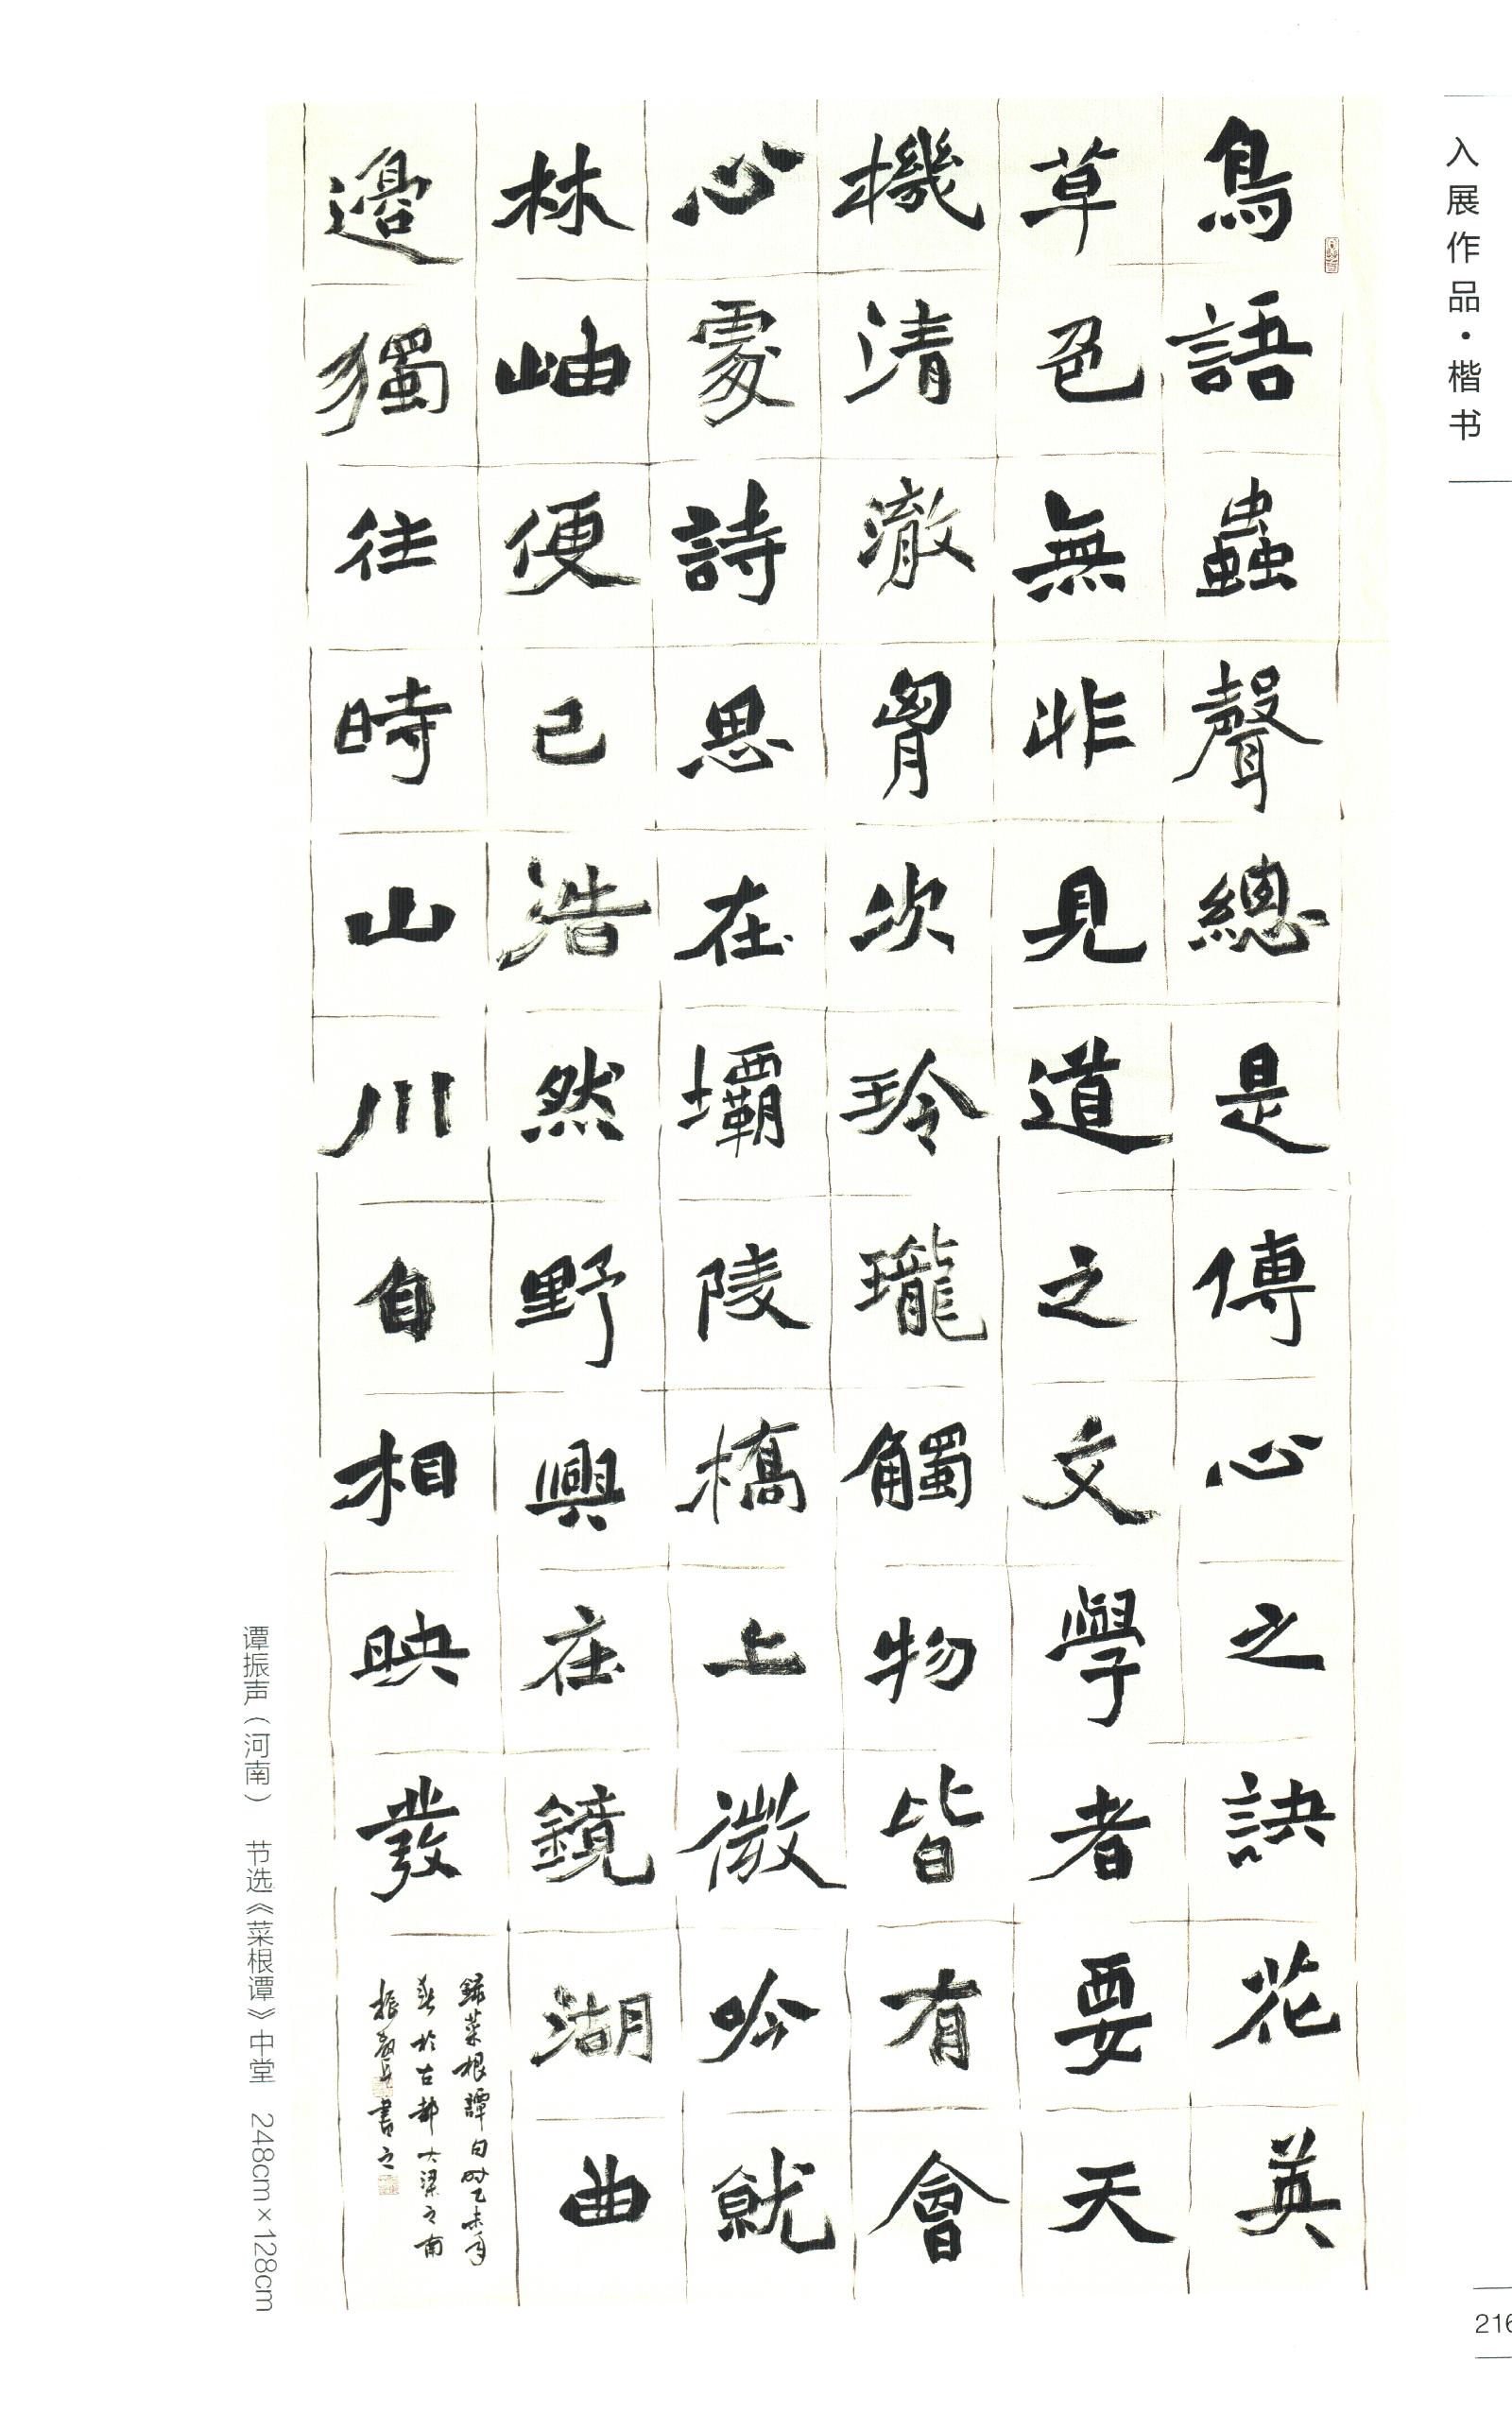 入展作品·楷书
鳥語蟲聲總是傳心之訣花英
草色無非見道之文學者要天
機清澈胷次玲瓏觸物皆有會
心處詩思在壩陵橋上微吟就
林岫便已浩然野興在鏡湖曲
邊獨往時山川自相映發
錄菜根譚句時乙未年
春於古都大梁之南
振聲書之
谭振声（河南） 节选《菜根谭》中堂 248cm×128cm
216